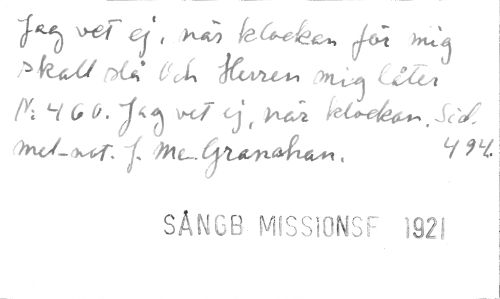 Jag vet ej, när klockan för mig
skall slå Och Herren mig låter
N: 460. Jag vet ej, när klockan. Sid.
mel-not. J. Mc. Granahan. 494.
SÅNGB MISSIONSF 1921